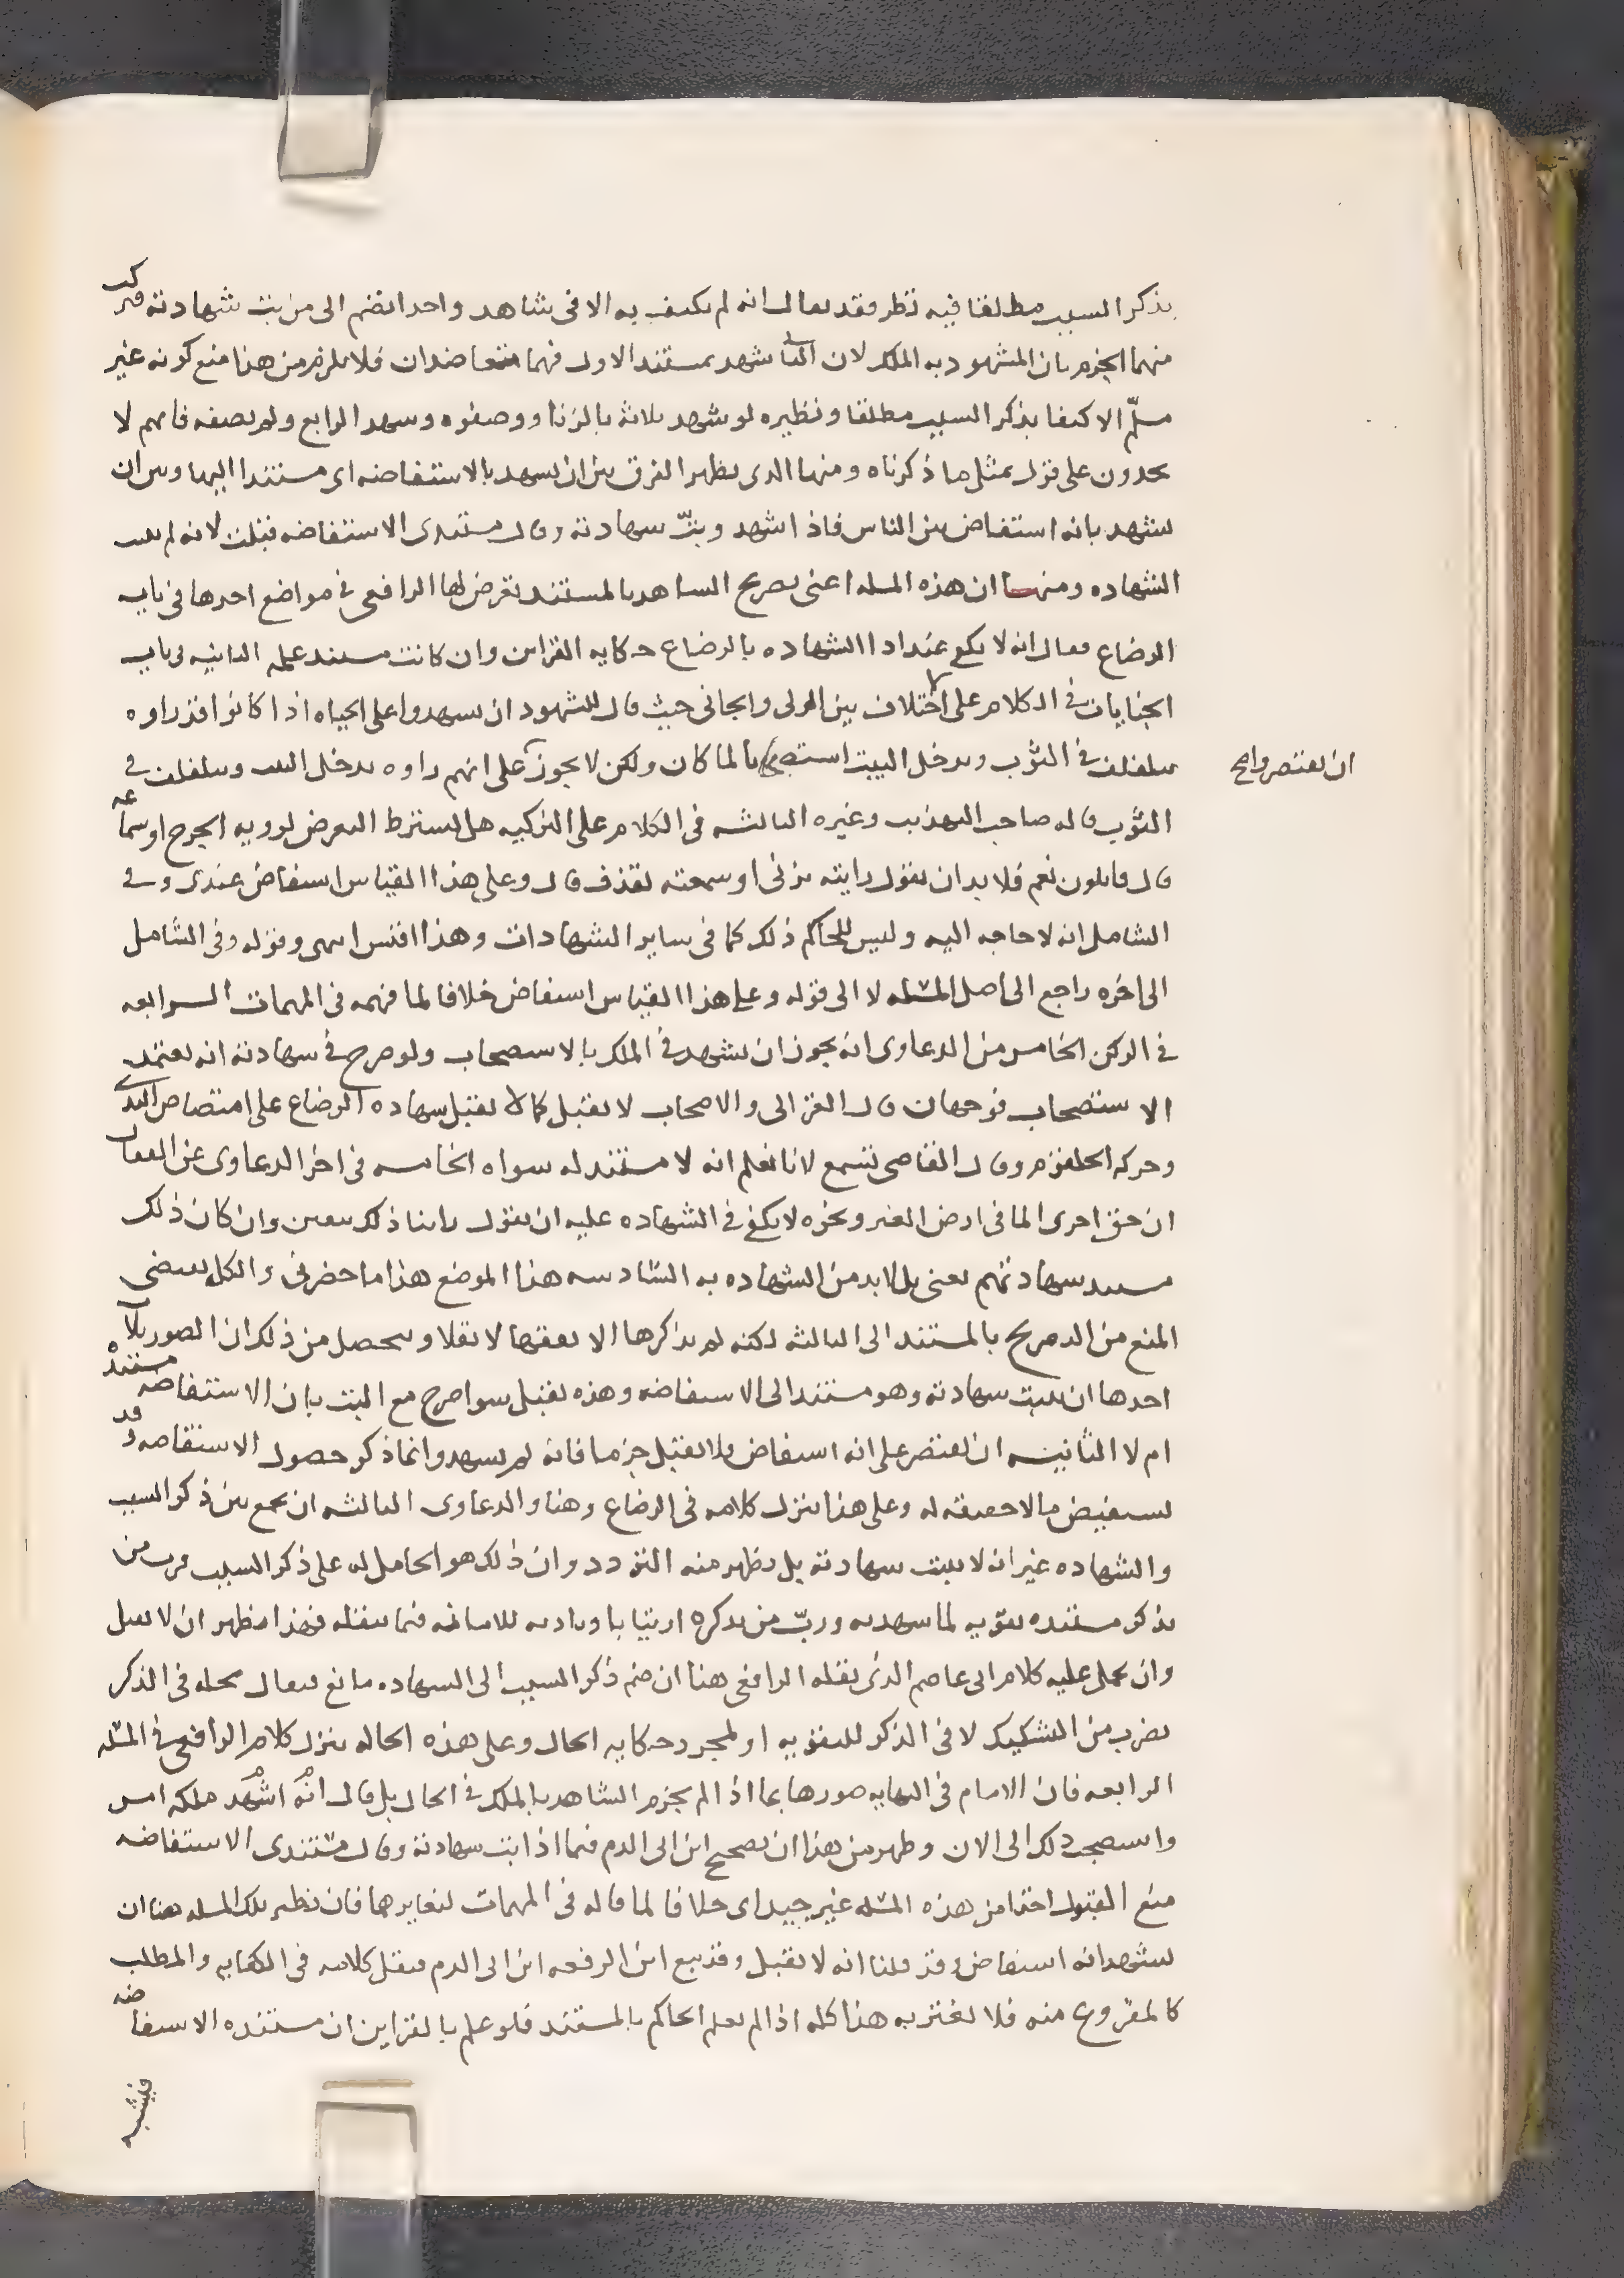 بذكر السبب مطلقا فيه نظر فقد يقال انه لم يكتف به الا في شاهد واحد انضم الى من بت شهادته فتركب
منهما الجزم بان المشهود به الملك لان الثاني شهد بمستند الاول فهما متعاضدان فلا يلزم من هذا منع كونه غير
مسلّم الاكتفا بذكر السبب مطلقا ونظيره لو شهد ثلاثة بالزنا ووصفوه وشهد الرابع ولم يصفه فانهم لا
يحدون على قول بمثل ما ذكرناه ومنها الذي يظهر الفرق بين ان يشهد بالاستفاضه اي مستندا اليها وبين ان
يشهد بانه استفاض بين الناس فاذا شهد وبتّ شهادته وقال مستندي الاستفاضه قبلت لانه لم
الشهاده ومنها ان هذه المسله اعني تصريح الشاهد بالمستند تعرض لها الرافعي في مواضع احدها في باب
الرضاع فقال انه لا يكفي عند ادا الشهاده بالرضاع حكايه القراين وان كانت مستند علمه الثانيه في باب
الجنايات في الكلام على اختلاف بين الولي والجاني حيث قال للشهود ان يشهدوا على الحياه اذا كانوا قد راوه
يتلفف في الثوب ويدخل البيت استصحابا لما كان ولكن لا يجوز على انهم راوه يدخل البيت ويتلفف في
ان يقتصروا صح
الثوب قاله صاحب التهذيب وغيره الثالثه في الكلام على التزكيه هل يشترط التعرض لرويه الجرح او سماعه
قال قايلون نعم فلا بد ان يقول رايته يزني او سمعته يقذف قال وعلى هذا القياس استفاض عندي وفي
الشامل انه لا حاجه اليه وليس للحاكم ذلك كما في ساير الشهادات وهذا اقيس انتهى وقوله وفي الشامل
الى اخره راجع الى اصل المسله لا الى قوله وعلى هذا القياس استفاض خلافا لما فهمه في المهمات الرابعه
في الركن الخامس من الدعاوى انه يجوز ان يشهد في الملك بالاستصحاب ولو صرح في شهادته انه يعتمد
الاستصحاب فوجهان قال الغزالي والاصحاب لا يقبل كما لا يقبل شهاده الرضاع على امتصاص الثدي
وحركه الحلقوم وقال القاضي تسمع لانا نعلم انه لا مستند له سواه الخامسه في اخر الدعاوى عن القفال
ان حق اجرى الما في ارض الغير ونحوه لا يكفي في الشهاده عليه ان يقول راينا ذلك سنين وان كان ذلك
مستند شهادتهم يعني بل لا بد من الشهاده به السادسه هذا الموضع هذا ما حضرني والكل يقتضي
المنع من التصريح بالمستند الى الثالثه لكنه لم يذكرها الا تفقها لا نقلا ويتحصل من ذلك ان الصور ثلاث
احدها ان يبت شهادته وهو مستند الى الاستفاضه وهذه تقبل سوا صرح مع البت بان الاستفاضه مستنده
ام لا الثانيه ان يقتصر على انه استفاض فلا يقبل جزما فانه لم يشهد وانما ذكر حصول الاستفاضه وقد
يستفيض ما لا حقيقه له وعلى هذا ينزل كلامه في الرضاع وهنا والدعاوى الثالثه ان يجمع بين ذكر السبب
والشهاده غير انه لا يبت شهادته بل يظهر منه التردد وان ذلك هو الحامل له على ذكر السبب فرب من
يذكر مستنده تقويه لما شهد به وربّ من يذكره ارتيابا وتاديه للامانه فيما ينقله فهذا يظهر ان لا يقبل
وان يحمل عليه كلام ابي عاصم الذي نقله الرافعي هنا ان ضم ذكر السبب الى الشهاده مانع فيقال محله في الذكر
بضرب من التشكيك لا في الذكر للتقويه او لمجرد حكايه الحال وعلى هذه الحاله ينزل كلام الرافعي في المسله
الرابعه فان الامام في النهايه صورها بما اذا لم يجزم الشاهد بالملك في الحال بل قال انه اشهد ملكه امس
واستصحب ذلك الى الان وظهر من هذا ان تصحيح ابن ابي الدم فيما اذا بت شهادته وقال مستندي الاستفاضه
منع القبول اخذا من هذه المسله غير جيد اي خلافا لما قاله في المهمات لتغايرهما فان نظير تلك المسله هنا ان
يشهد انه استفاض وقد قلنا انه لا يقبل وقد تبع ابن الرفعه ابن ابي الدم فنقل كلامه في الكفايه والمطلب
كالمفروغ منه فلا يغتر به هذا كله اذا لم يعلم الحاكم بالمستند فلو علم بالقراين ان مستنده الاستفاضه
فيشبه